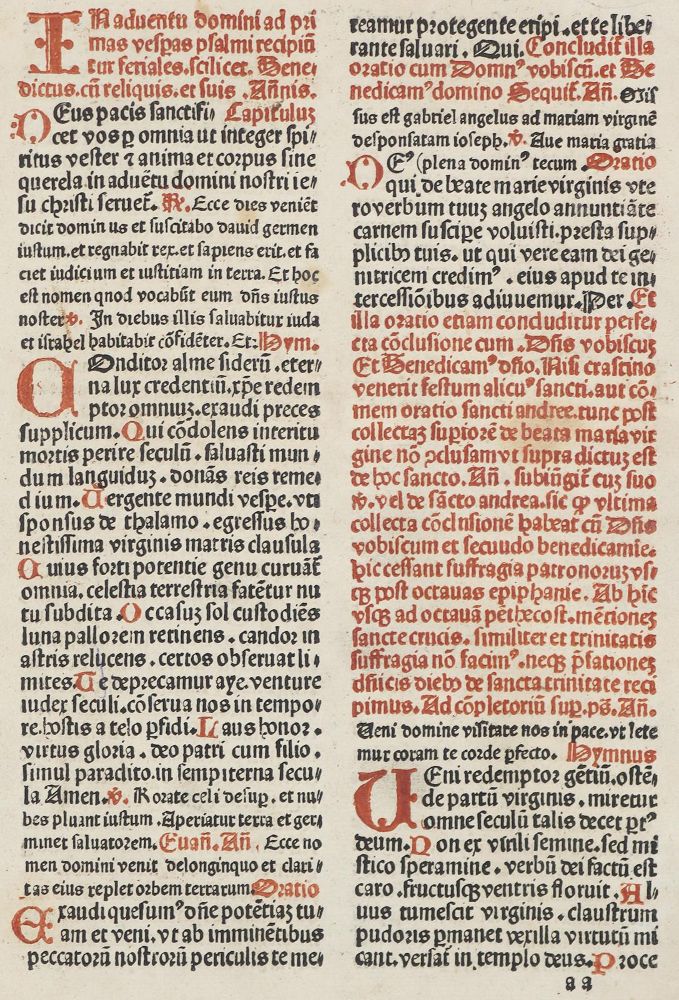 IN aduentu domini ad pri
mas vesp̲as psalmi recipiūt
tur feriales. scilicet. Bene⸗
dictus. cū reliquis. et suis. Añnis.
DEus pacis sanctifi⸗ Capituluꝫ
cet vos ꝑ omnia ut integer spi⸗
ritus vester ⁊ anima et corpus sine
querela. in aduētu domini nostri ie⸗
su christi seruet̄. ℟. Ecce dies veniēt
dicit dominus et suscitabo dauid germen
iustum. et regnabit rex. et sapiens erit. et fa
ciet iudicium et iustitiam in terra. Et hoc
est nomen qnod vocabūt eum dn̄s iustus
noster ℣. In diebus illis saluabitur iuda
et israhel habitabit cōfidēter. Et: Hym.
COnditor alme siderū. eter⸗
na lux credentiū. xp̄e redem
ptor omniuꝫ. exaudi preces
supplicum. Qui cōdolens interitu
mortis perire seculū. saluasti mun⸗
dum languiduꝫ. donās reis reme⸗
dium. Uergente mundi vesꝑe. vti
sponsus de thalamo. egressus ho⸗
nestissima virginis matris clausula
Cuius forti potentie genu curuāt̄
omnia. celestia terrestria fatētur nu
tu subdita. Occasuꝫ sol custodiēs
luna pallorem retinens. candor in
astris relucens. certos obseruat li⸗
mites. Te deprecamur aye. venture
iudex seculi. cōserua nos in tempo⸗
re. hostis a telo ꝑfidi. Laus honor.
virtus gloria. deo patri cum filio.
simul paradito. in sempiterna secu⸗
la Amen. ℣. Rorate celi desuꝑ. et nu⸗
bes pluant iustum. Aperiatur terra et ger⸗
minet saluatorem. Euan̄. An̄. Ecce no
men domini venit de longinquo et clari⸗
tas eius replet orbem terrarum. Oratio
Exaudi quesumꝰ dn̄e potētiaꝫ tu⸗
am et veni. vt ab imminētibus
peccatorū nostrorū periculis te me⸗
reamur protegente eripi. et te libe⸗
rante saluari. Qui. Concludit̄ illa
oratio cum Domnꝰ vobiscū. et Be
nedicamꝰ domino Sequit̄. An̄. Mis
sus est gabriel angelus ad mariam virginē
desponsatam ioseph. ℣. Aue maria gratia
DEꝰ (plena dominꝰ tecum. Oratio
qui. de beate marie virginis vte
ro verbum tuuꝫ angelo annuntiāte
carnem suscipe voluisti. presta sup⸗
plicibꝫ tuis. ut qui vere eam dei ge⸗
nitricem credimꝰ. eius apud te in⸗
tercessiōibus adiuuemur. Per. Et
illa oratio etiam concluditur perfe⸗
cta cōclusione cum. Dn̄s vobiscuꝫ
Et Benedicamꝰ dn̄o. Nisi crastino
venerit festum alicuꝰ sancti. aut cō⸗
mem oratio sancti andree. tunc post
collectaꝫ suꝑiorē de beata maria vir
gine nō ꝓclusam vt supra dictuꝫ est
de hoc sancto. An̄. subiūgit̄ cuꝫ suo
℣. vel de sācto andrea. sic ꝙ vltima
collecta cōclnsionē habeat cū Dn̄s
vobiscum et secuudo benedicamie.
hic cessant suffragia patronoruꝫ vs⸗
qꝫ post octauas epiphanie. Ab hīc
vsqꝫ ad octauā pēthecost. mētioneꝫ
sancte crucis. similiter et trinitatis
suffragia nō facimꝰ. neqꝫ p̄fationeꝫ
dn̄icis diebꝫ de sancta trinitate reci
pimus. Ad cōpletoriū suꝑ. ps̄. An̄.
Ueni domine visitate nos in pace. vt lete
mur coram te corde ꝑfecto. Hymnus
UEni redemptor gētiū. ostē⸗
de partū virginis. miretur
omne seculū talis decet ꝑtꝰ
deum. Non ex virili semine. sed mi
stico speramine. verbū dei factū est
caro. fructusqꝫ ventris floruit. Al⸗
uus tumescit virginis. claustrum
pudoris ꝑmanet vexilla virtutū mi
cant. versat̄ in templo deus. Proce
aa